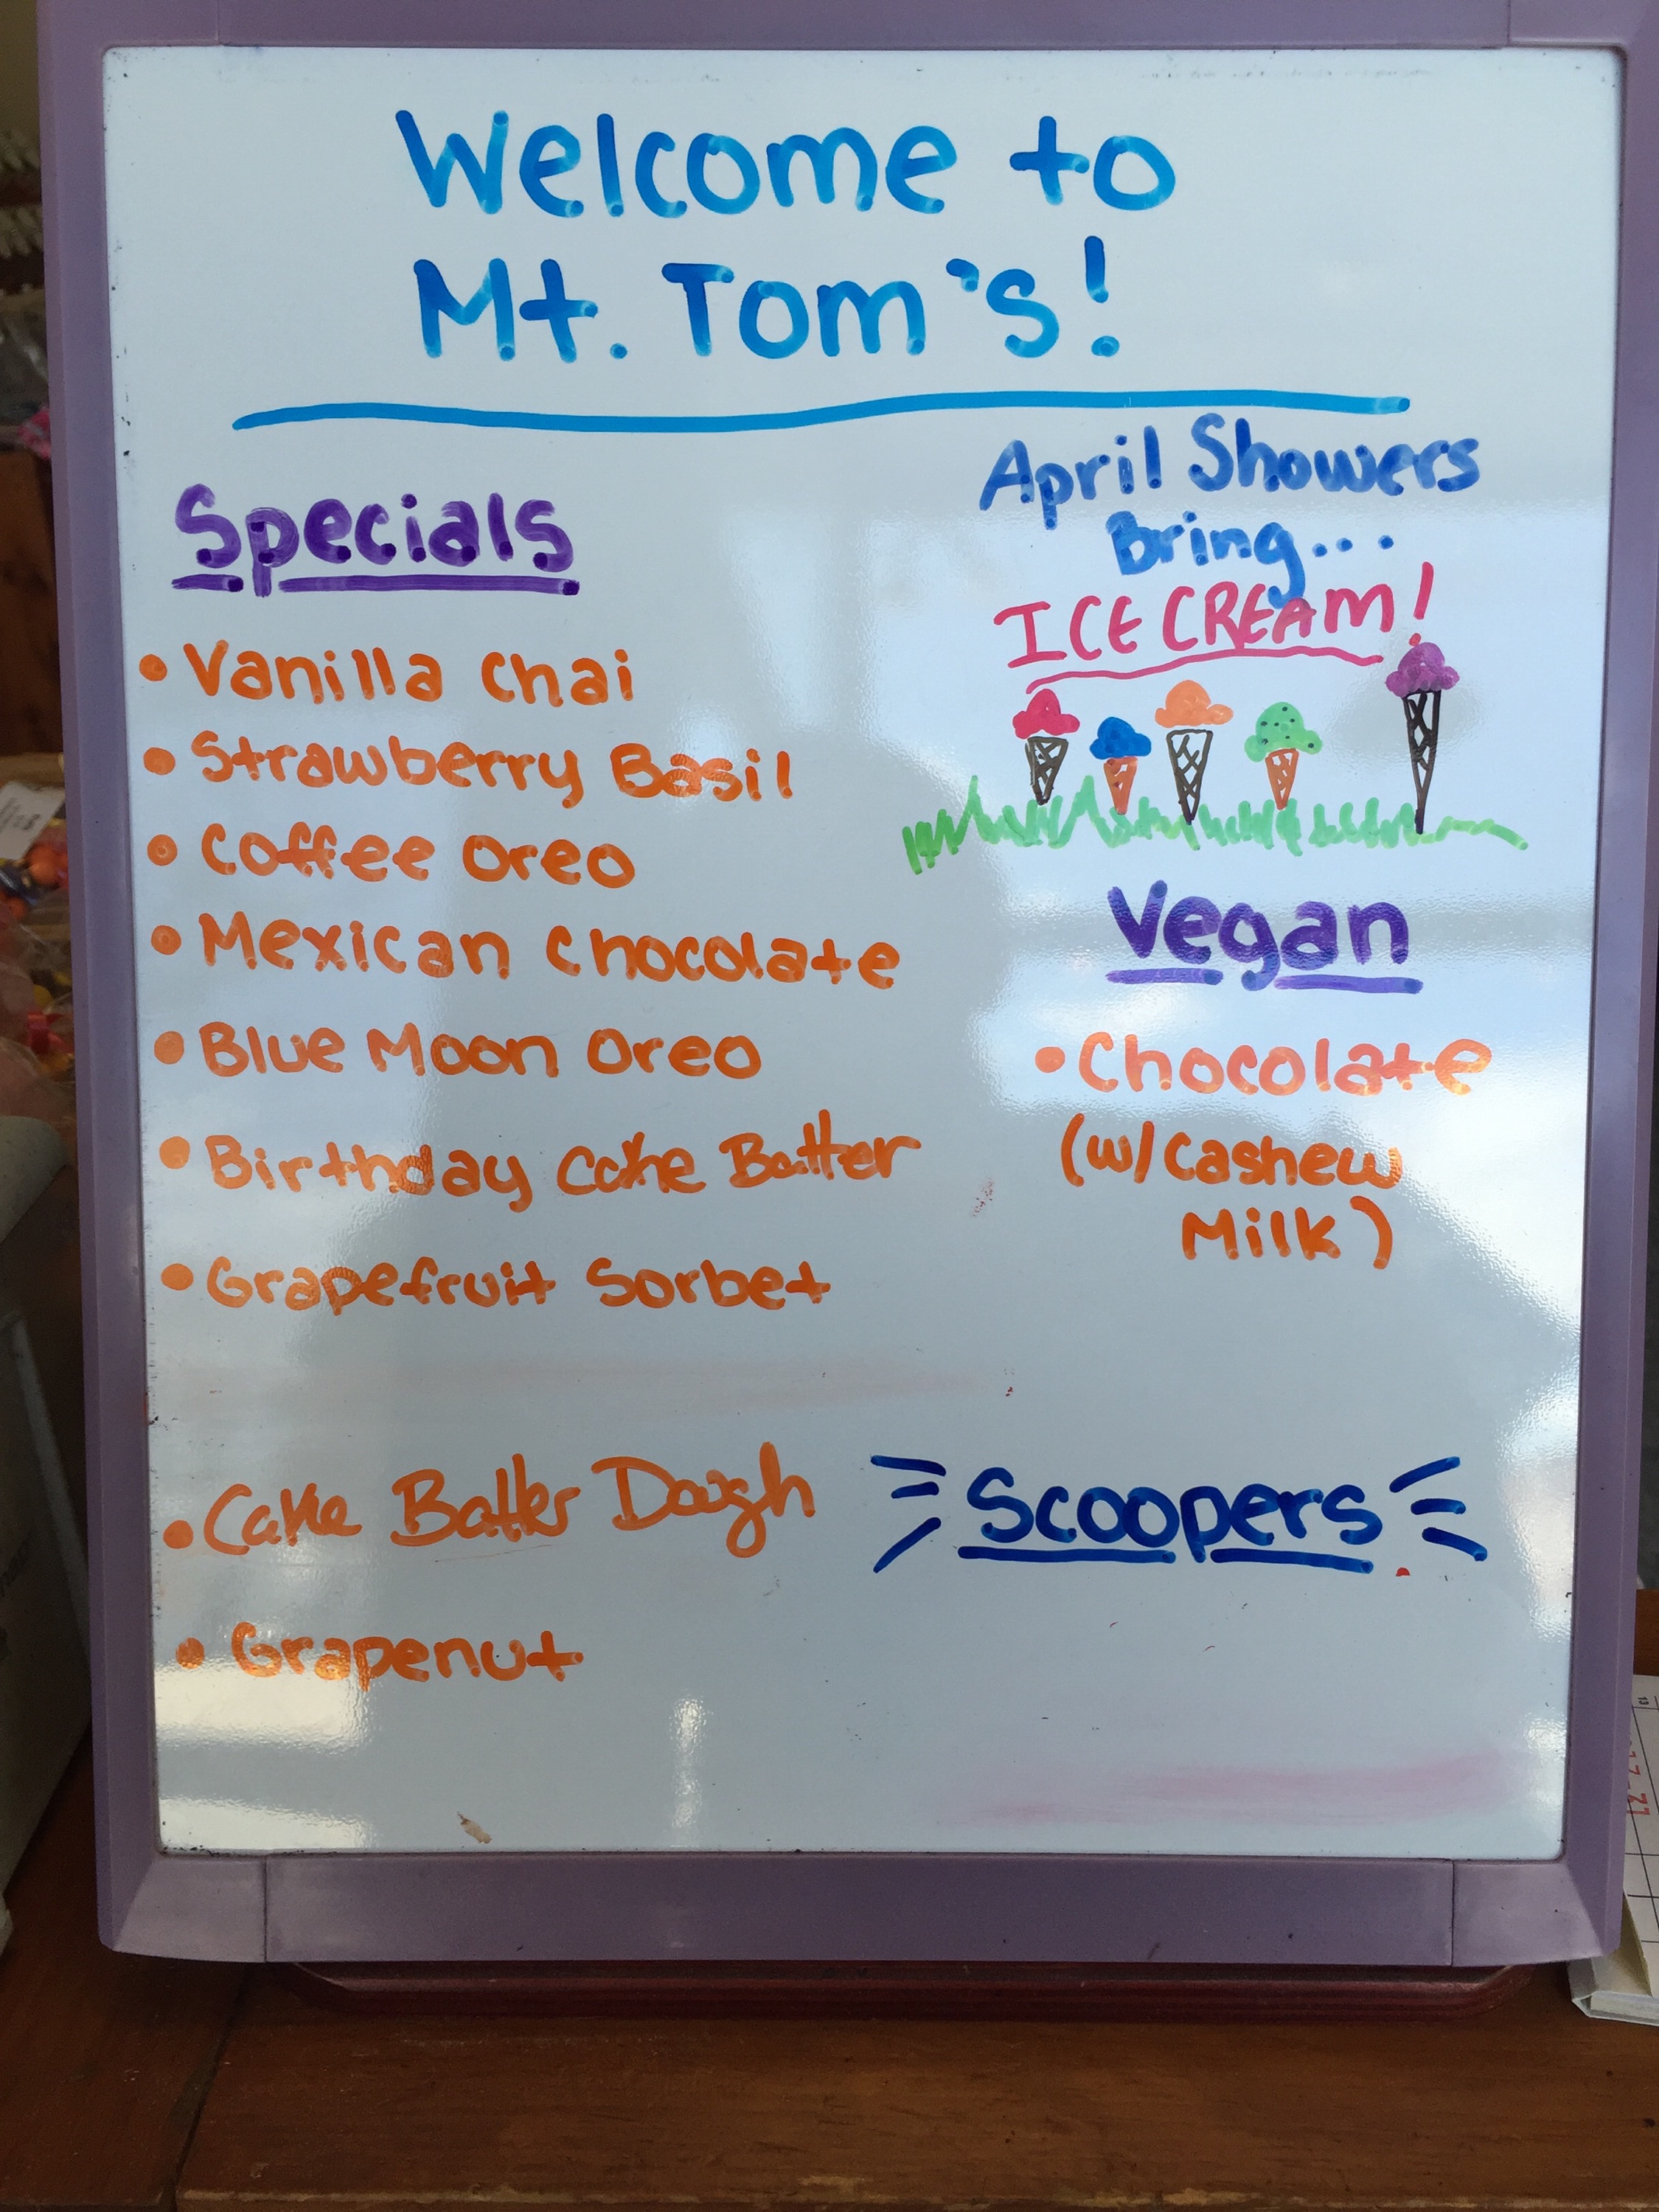 Welcome to
Mt. Tom's!
Specials
• Vanilla Chai
• Strawberry Basil
• Coffee Oreo
• Mexican Chocolate
• Blue Moon Oreo
• Birthday Cake Batter
• Grapefruit Sorbet
• Cake Batter Dough
• Grapenut
April Showers
Bring...
ICE CREAM!
Vegan
• Chocolate
(w/Cashew
Milk)
Scoopers